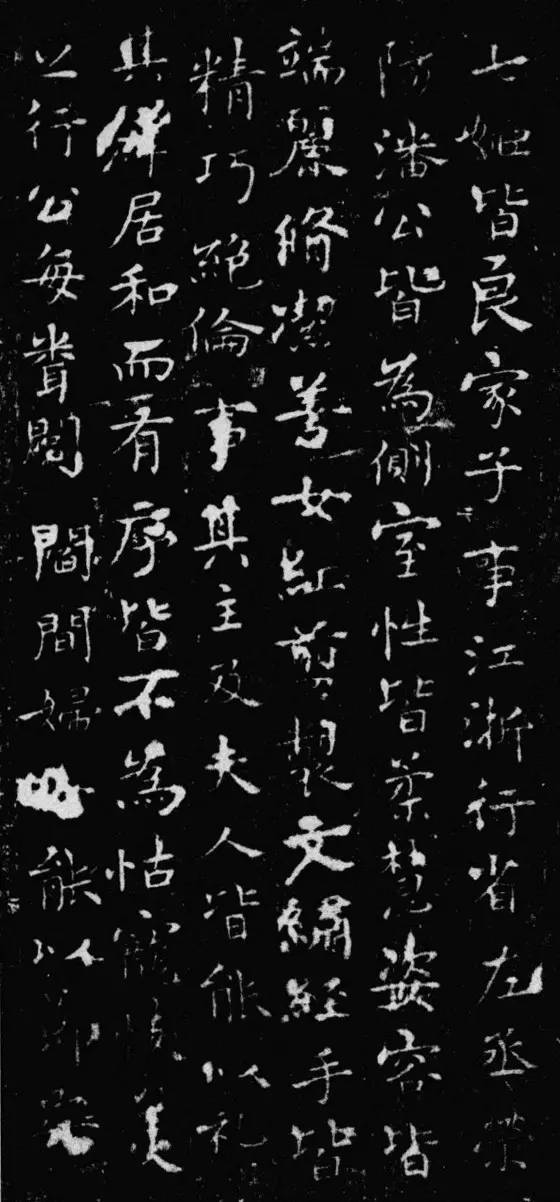 七姬皆良家子事江浙行省左丞榮
防潘公皆為側室性皆柔慧姿容皆
端麗脩潔善女紅剪製文繡經手皆
精巧絕倫事其主及夫人皆能以礼
其儕居和而有序皆不為怙寵忮美
之行公每聞閭閻間婦能以節